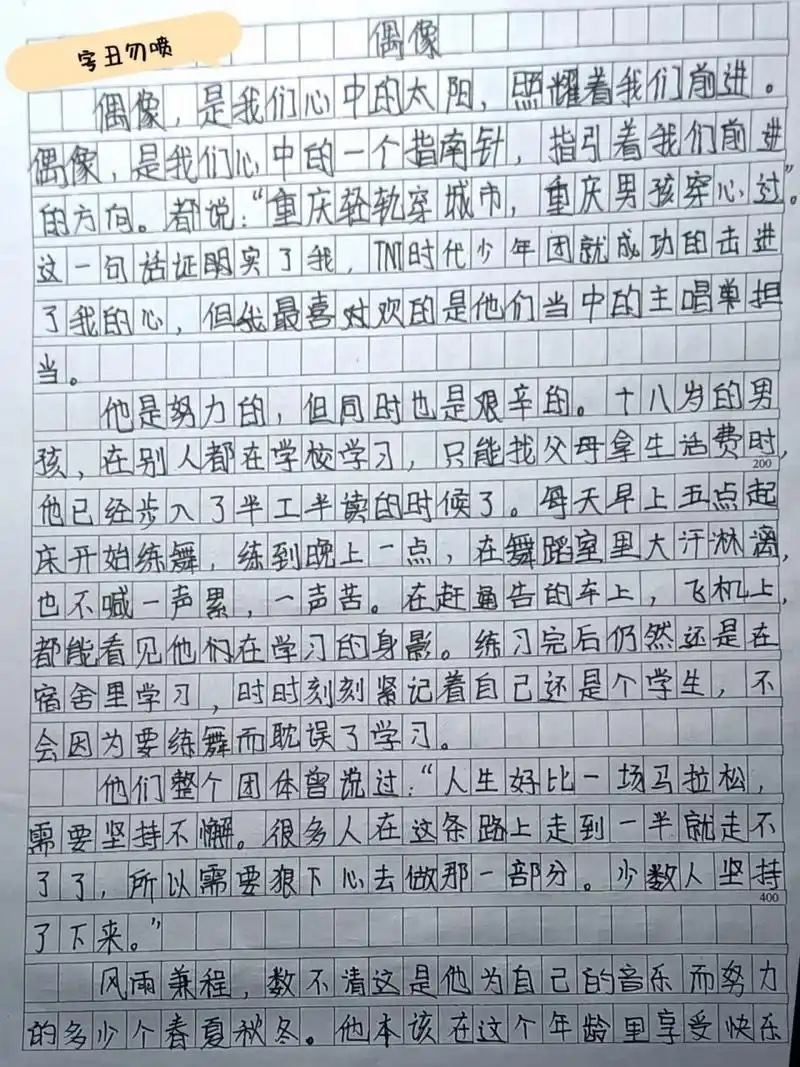 字丑勿喷
偶像
偶像，是我们心中的太阳，照耀着我们前进。
偶像，是我们心中的一个指南针，指引着我们前进
的方向。都说：“重庆轻轨穿城市，重庆男孩穿心过”。
这一句话证明实了我，TNT时代少年团就成功的击进
了我的心，但我最喜对欢的是他们当中的主唱单担
当。
他是努力的，但同时也是艰辛的。十八岁的男
孩，在别人都在学校学习，只能找父母拿生活费时，
200
他已经步入了半工半读的时候了。每天早上五点起
床开始练舞，练到晚上一点，在舞蹈室里大汗淋漓，
也不喊一声累，一声苦。在赶通告的车上，飞机上，
都能看见他们在学习的身影。练习完后仍然还是在
宿舍里学习，时时刻刻紧记着自己还是个学生，不
会因为要练舞而耽误了学习。
他们整个团体曾说过：“人生好比一场马拉松，
需要坚持不懈。很多人在这条路上走到一半就走不
了了，所以需要狠下心去做那一部分。少数人坚持
400
了下来。”
风雨兼程，数不清这是他为自己的音乐而努力
的多少个春夏秋冬。他本该在这个年龄里享受快乐